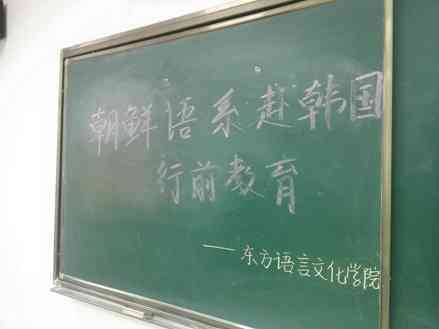 朝鲜语系赴韩国
行前教育
——东方语言文化学院